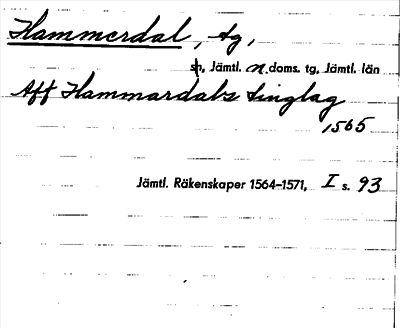 Hammerdal, tg,
sn, Jämtl. n. doms. tg, Jämtl. län
Aff Hammardals tinglag
1565
Jämtl. Räkenskaper 1564-1571, I s. 93